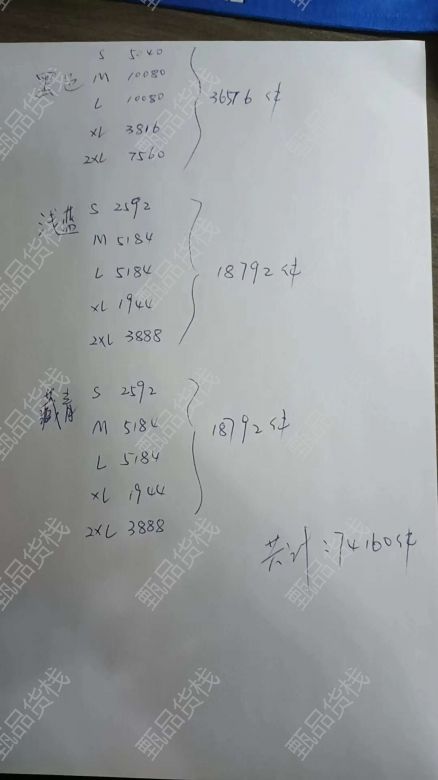 黑色 S 5040
M 10080
L 10080
XL 3816
2XL 7560
36576件
浅蓝 S 2592
M 5184
L 5184
XL 1944
2XL 3888
18792件
藏青 S 2592
M 5184
L 5184
XL 1944
2XL 3888
18792件
共计:74160件
甄品货栈